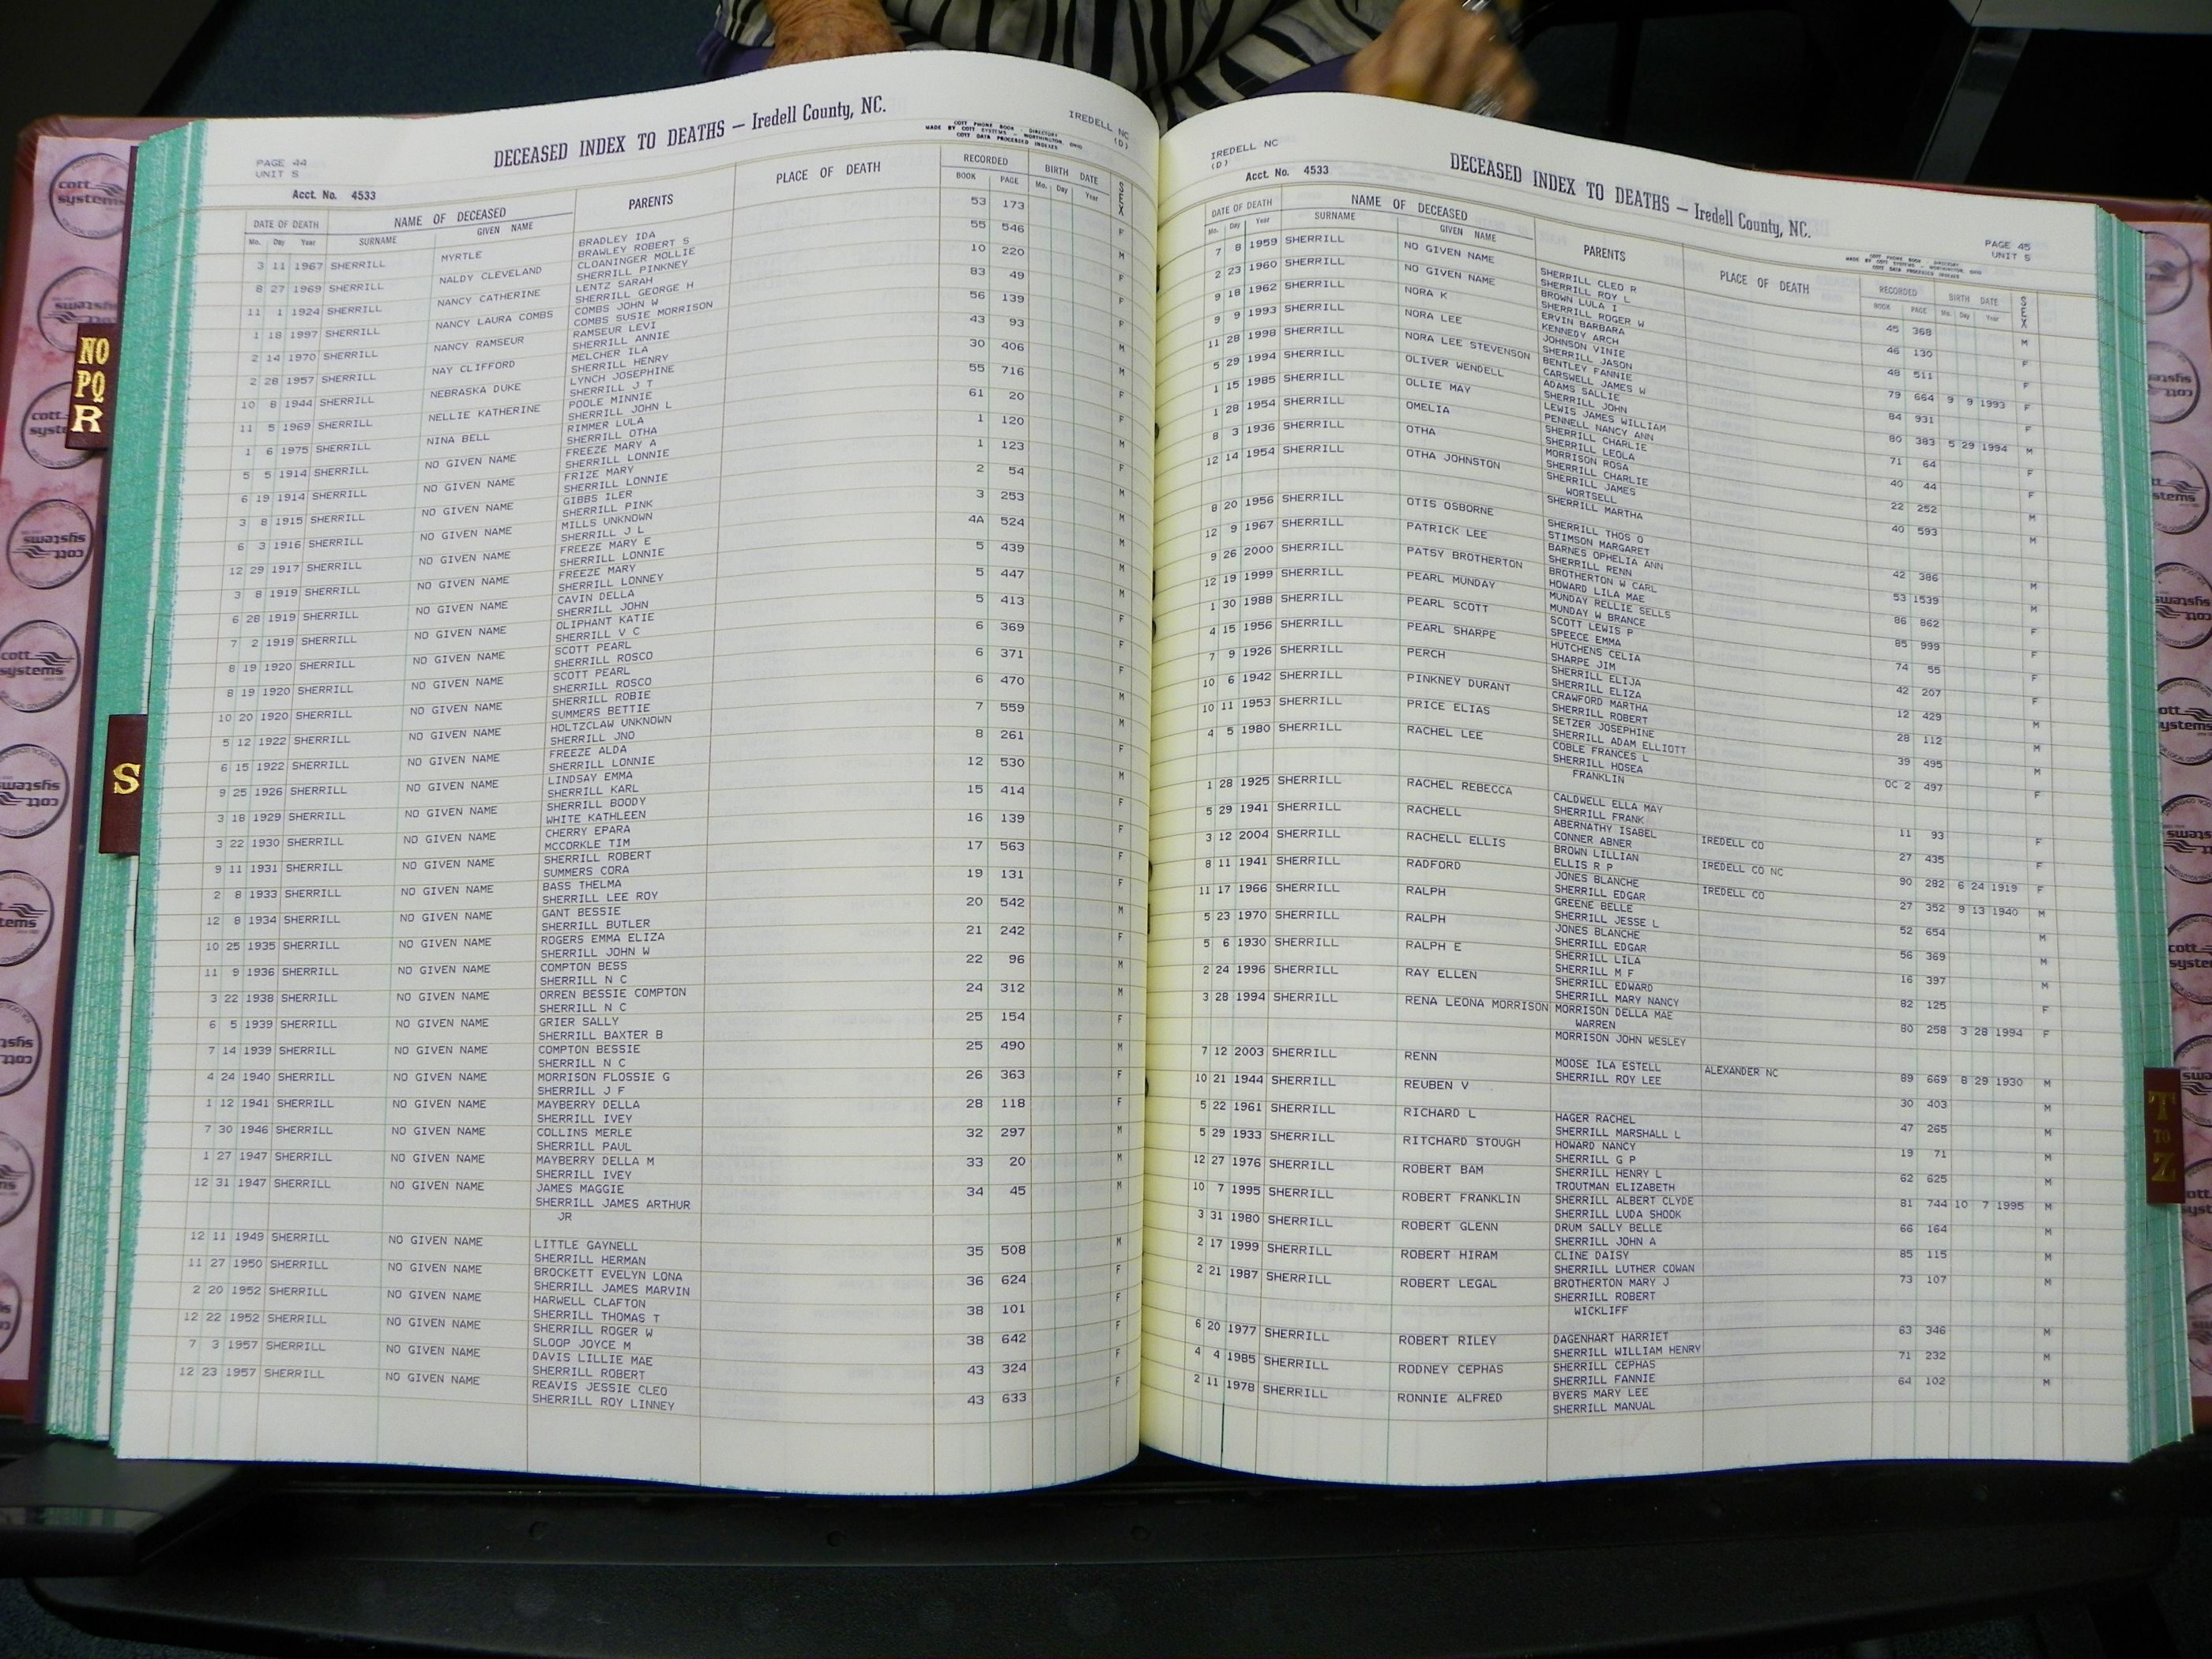 DECEASED INDEX TO DEATHS — Iredell County, NC.
IREDELL NC
(D)
COTT PHONE BOOK - DIRECTORY
MADE BY COTT SYSTEMS - WORTHINGTON, OHIO
COTT DATA PROCESSED INDEXES
PAGE 44
UNIT S
Acct. No. 4533
DATE OF DEATH NAME OF DECEASED PARENTS PLACE OF DEATH RECORDED BIRTH DATE SEX
Mo. Day Year SURNAME GIVEN NAME BOOK PAGE Mo. Day Year
3 11 1967 SHERRILL MYRTLE BRADLEY IDA 53 173 F
BRAWLEY ROBERT S
8 27 1969 SHERRILL NALDY CLEVELAND CLOANINGER MOLLIE 55 546 M
SHERRILL PINKNEY
11 1 1924 SHERRILL NANCY CATHERINE LENTZ SARAH 10 220 F
SHERRILL GEORGE H
1 18 1997 SHERRILL NANCY LAURA COMBS COMBS JOHN W 83 49 F
COMBS SUSIE MORRISON
2 14 1970 SHERRILL NANCY RAMSEUR RAMSEUR LEVI 56 139 F
SHERRILL ANNIE
2 28 1957 SHERRILL NAY CLIFFORD MELCHER ILA 43 93 M
SHERRILL HENRY
10 8 1944 SHERRILL NEBRASKA DUKE LYNCH JOSEPHINE 30 406 M
SHERRILL J T
11 5 1969 SHERRILL NELLIE KATHERINE POOLE MINNIE 55 716 F
SHERRILL JOHN L
1 6 1975 SHERRILL NINA BELL RIMMER LULA 61 20 F
SHERRILL OTHA
5 5 1914 SHERRILL NO GIVEN NAME FREEZE MARY A 1 120 M
SHERRILL LONNIE
6 19 1914 SHERRILL NO GIVEN NAME FRIZE MARY 1 123 F
SHERRILL LONNIE
3 8 1915 SHERRILL NO GIVEN NAME GIBBS ILER 2 54 M
SHERRILL PINK
6 3 1916 SHERRILL NO GIVEN NAME MILLS UNKNOWN 3 253 M
SHERRILL J L
12 29 1917 SHERRILL NO GIVEN NAME FREEZE MARY E 4A 524 M
SHERRILL LONNIE
3 8 1919 SHERRILL NO GIVEN NAME FREEZE MARY 5 439 M
SHERRILL LONNEY
6 28 1919 SHERRILL NO GIVEN NAME CAVIN DELLA 5 447 F
SHERRILL JOHN
7 2 1919 SHERRILL NO GIVEN NAME OLIPHANT KATIE 5 413 F
SHERRILL V C
8 19 1920 SHERRILL NO GIVEN NAME SCOTT PEARL 6 369 F
SHERRILL ROSCO
8 19 1920 SHERRILL NO GIVEN NAME SCOTT PEARL 6 371 M
SHERRILL ROSCO
10 20 1920 SHERRILL NO GIVEN NAME SHERRILL ROBIE 6 470 M
SUMMERS BETTIE
5 12 1922 SHERRILL NO GIVEN NAME HOLTZCLAW UNKNOWN 7 559 F
SHERRILL JNO
6 15 1922 SHERRILL NO GIVEN NAME FREEZE ALDA 8 261 M
SHERRILL LONNIE
9 25 1926 SHERRILL NO GIVEN NAME LINDSAY EMMA 12 530 F
SHERRILL KARL
3 18 1929 SHERRILL NO GIVEN NAME SHERRILL BOODY 15 414 F
WHITE KATHLEEN
3 22 1930 SHERRILL NO GIVEN NAME CHERRY EPARA 16 139 F
MCCORKLE TIM
9 11 1931 SHERRILL NO GIVEN NAME SHERRILL ROBERT 17 563 F
SUMMERS CORA
2 8 1933 SHERRILL NO GIVEN NAME BASS THELMA 19 131 M
SHERRILL LEE ROY
12 8 1934 SHERRILL NO GIVEN NAME GANT BESSIE 20 542 F
SHERRILL BUTLER
10 25 1935 SHERRILL NO GIVEN NAME ROGERS EMMA ELIZA 21 242 M
SHERRILL JOHN W
11 9 1936 SHERRILL NO GIVEN NAME COMPTON BESS 22 96 M
SHERRILL N C
3 22 1938 SHERRILL NO GIVEN NAME ORREN BESSIE COMPTON 24 312 F
SHERRILL N C
6 5 1939 SHERRILL NO GIVEN NAME GRIER SALLY 25 154 M
SHERRILL BAXTER B
7 14 1939 SHERRILL NO GIVEN NAME COMPTON BESSIE 25 490 F
SHERRILL N C
4 24 1940 SHERRILL NO GIVEN NAME MORRISON FLOSSIE G 26 363 F
SHERRILL J F
1 12 1941 SHERRILL NO GIVEN NAME MAYBERRY DELLA 28 118 M
SHERRILL IVEY
7 30 1946 SHERRILL NO GIVEN NAME COLLINS MERLE 32 297 M
SHERRILL PAUL
1 27 1947 SHERRILL NO GIVEN NAME MAYBERRY DELLA M 33 20 M
SHERRILL IVEY
12 31 1947 SHERRILL NO GIVEN NAME JAMES MAGGIE 34 45 M
SHERRILL JAMES ARTHUR
JR
12 11 1949 SHERRILL NO GIVEN NAME LITTLE GAYNELL 35 508 F
SHERRILL HERMAN
11 27 1950 SHERRILL NO GIVEN NAME BROCKETT EVELYN LONA 36 624 F
SHERRILL JAMES MARVIN
2 20 1952 SHERRILL NO GIVEN NAME HARWELL CLAFTON 38 101 F
SHERRILL THOMAS T
12 22 1952 SHERRILL NO GIVEN NAME SHERRILL ROGER W 38 642 F
SLOOP JOYCE M
7 3 1957 SHERRILL NO GIVEN NAME DAVIS LILLIE MAE 43 324 F
SHERRILL ROBERT
12 23 1957 SHERRILL NO GIVEN NAME REAVIS JESSIE CLEO 43 633
SHERRILL ROY LINNEY
IREDELL NC
(D)
DECEASED INDEX TO DEATHS — Iredell County, NC.
Acct. No. 4533
PAGE 45
UNIT S
COTT PHONE BOOK - DIRECTORY
MADE BY COTT SYSTEMS - WORTHINGTON, OHIO
COTT DATA PROCESSED INDEXES
DATE OF DEATH NAME OF DECEASED PARENTS PLACE OF DEATH RECORDED BIRTH DATE SEX
Mo. Day Year SURNAME GIVEN NAME BOOK PAGE Mo. Day Year
7 8 1959 SHERRILL NO GIVEN NAME SHERRILL CLEO R 45 368 M
SHERRILL ROY L
2 23 1960 SHERRILL NO GIVEN NAME BROWN LULA I 46 130 F
SHERRILL ROGER W
9 18 1962 SHERRILL NORA K ERVIN BARBARA 48 511 F
KENNEDY ARCH
9 9 1993 SHERRILL NORA LEE JOHNSON VINIE 79 664 9 9 1993 F
SHERRILL JASON
11 28 1998 SHERRILL NORA LEE STEVENSON BENTLEY FANNIE 84 931 F
CARSWELL JAMES W
5 29 1994 SHERRILL OLIVER WENDELL ADAMS SALLIE 80 383 5 29 1994 M
SHERRILL JOHN
1 15 1985 SHERRILL OLLIE MAY LEWIS JAMES WILLIAM 71 64 F
PENNELL NANCY ANN
1 28 1954 SHERRILL OMELIA SHERRILL CHARLIE 40 44 F
SHERRILL LEOLA
8 3 1936 SHERRILL OTHA MORRISON ROSA 22 252 M
SHERRILL CHARLIE
12 14 1954 SHERRILL OTHA JOHNSTON SHERRILL JAMES 40 593 M
WORTSELL
SHERRILL MARTHA
8 20 1956 SHERRILL OTIS OSBORNE SHERRILL THOS O 42 386 M
STIMSON MARGARET
12 9 1967 SHERRILL PATRICK LEE BARNES OPHELIA ANN 53 1539 M
SHERRILL RENN
9 26 2000 SHERRILL PATSY BROTHERTON BROTHERTON W CARL 86 862 F
HOWARD LILA MAE
12 19 1999 SHERRILL PEARL MUNDAY MUNDAY RELLIE SELLS 85 999 F
MUNDAY W BRANCE
1 30 1988 SHERRILL PEARL SCOTT SCOTT LEWIS P 74 55 F
SPEECE EMMA
4 15 1956 SHERRILL PEARL SHARPE HUTCHENS CELIA 42 207 F
SHARPE JIM
7 9 1926 SHERRILL PERCH SHERRILL ELIJA 12 429 M
SHERRILL ELIZA
10 6 1942 SHERRILL PINKNEY DURANT CRAWFORD MARTHA 28 112 M
SHERRILL ROBERT
10 11 1953 SHERRILL PRICE ELIAS SETZER JOSEPHINE 39 495 M
SHERRILL ADAM ELLIOTT
4 5 1980 SHERRILL RACHEL LEE COBLE FRANCES L OC 2 497 F
SHERRILL HOSEA
FRANKLIN
1 28 1925 SHERRILL RACHEL REBECCA CALDWELL ELLA MAY 11 93 F
SHERRILL FRANK
5 29 1941 SHERRILL RACHELL ABERNATHY ISABEL IREDELL CO 27 435 F
CONNER ABNER
3 12 2004 SHERRILL RACHELL ELLIS BROWN LILLIAN IREDELL CO NC 90 282 6 24 1919 F
ELLIS R P
8 11 1941 SHERRILL RADFORD JONES BLANCHE IREDELL CO 27 352 9 13 1940 M
SHERRILL EDGAR
11 17 1966 SHERRILL RALPH GREENE BELLE 52 654 M
SHERRILL JESSE L
5 23 1970 SHERRILL RALPH JONES BLANCHE 56 369 M
SHERRILL EDGAR
5 6 1930 SHERRILL RALPH E SHERRILL LILA 16 397 M
SHERRILL M F
2 24 1996 SHERRILL RAY ELLEN SHERRILL EDWARD 82 125 F
SHERRILL MARY NANCY
3 28 1994 SHERRILL RENA LEONA MORRISON MORRISON DELLA MAE 80 258 3 28 1994 F
WARREN
MORRISON JOHN WESLEY
7 12 2003 SHERRILL RENN MOOSE ILA ESTELL ALEXANDER NC 89 669 8 29 1930 M
SHERRILL ROY LEE
10 21 1944 SHERRILL REUBEN V 30 403 M
5 22 1961 SHERRILL RICHARD L HAGER RACHEL 47 265 M
SHERRILL MARSHALL L
5 29 1933 SHERRILL RITCHARD STOUGH HOWARD NANCY 19 71 M
SHERRILL G P
12 27 1976 SHERRILL ROBERT BAM SHERRILL HENRY L 62 625 M
TROUTMAN ELIZABETH
10 7 1995 SHERRILL ROBERT FRANKLIN SHERRILL ALBERT CLYDE 81 744 10 7 1995 M
SHERRILL LUDA SHOOK
3 31 1980 SHERRILL ROBERT GLENN DRUM SALLY BELLE 66 164 M
SHERRILL JOHN A
2 17 1999 SHERRILL ROBERT HIRAM CLINE DAISY 85 115 M
SHERRILL LUTHER COWAN
2 21 1987 SHERRILL ROBERT LEGAL BROTHERTON MARY J 73 107 M
SHERRILL ROBERT
WICKLIFF
6 20 1977 SHERRILL ROBERT RILEY DAGENHART HARRIET 63 346 M
SHERRILL WILLIAM HENRY
4 4 1985 SHERRILL RODNEY CEPHAS SHERRILL CEPHAS 71 232 M
SHERRILL FANNIE
2 11 1978 SHERRILL RONNIE ALFRED BYERS MARY LEE 64 102 M
SHERRILL MANUAL
NO
PQ
R
S
T
TO
Z
cott
systems